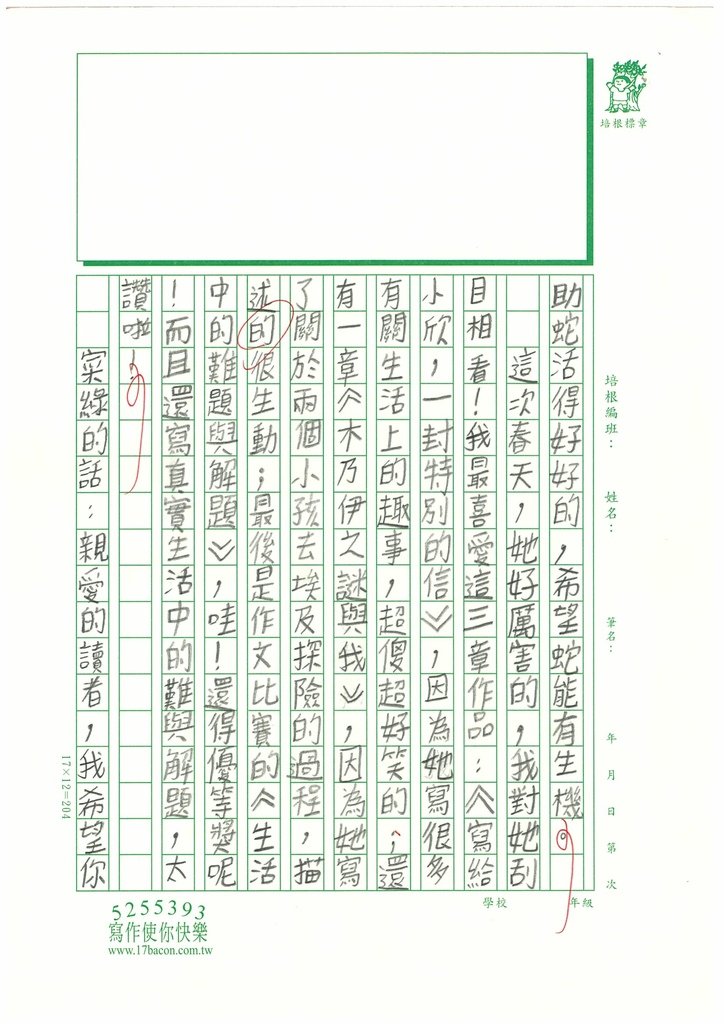 培根標章
培根編班： 姓名： 筆名： 年 月 日 第 次
助蛇活得好好的，希望蛇能有生機。
這次春天，她好厲害的，我對她刮
目相看！我最喜愛這三章作品：《寫給
小欣，一封特別的信》，因為她寫很多
有關生活上的趣事，超傻超好笑的；還
有一章《木乃伊之謎與我》，因為她寫
了關於兩個小孩去埃及探險的過程，描
述的很生動；最後是作文比賽的《生活
中的難題與解題》，哇！還得優等獎呢
！而且還寫真實生活中的難與解題，太
讚啦
寀綠的話：親愛的讀者，我希望你
17×12=204
學校 年級
5255393
寫作使你快樂
www.17bacon.com.tw